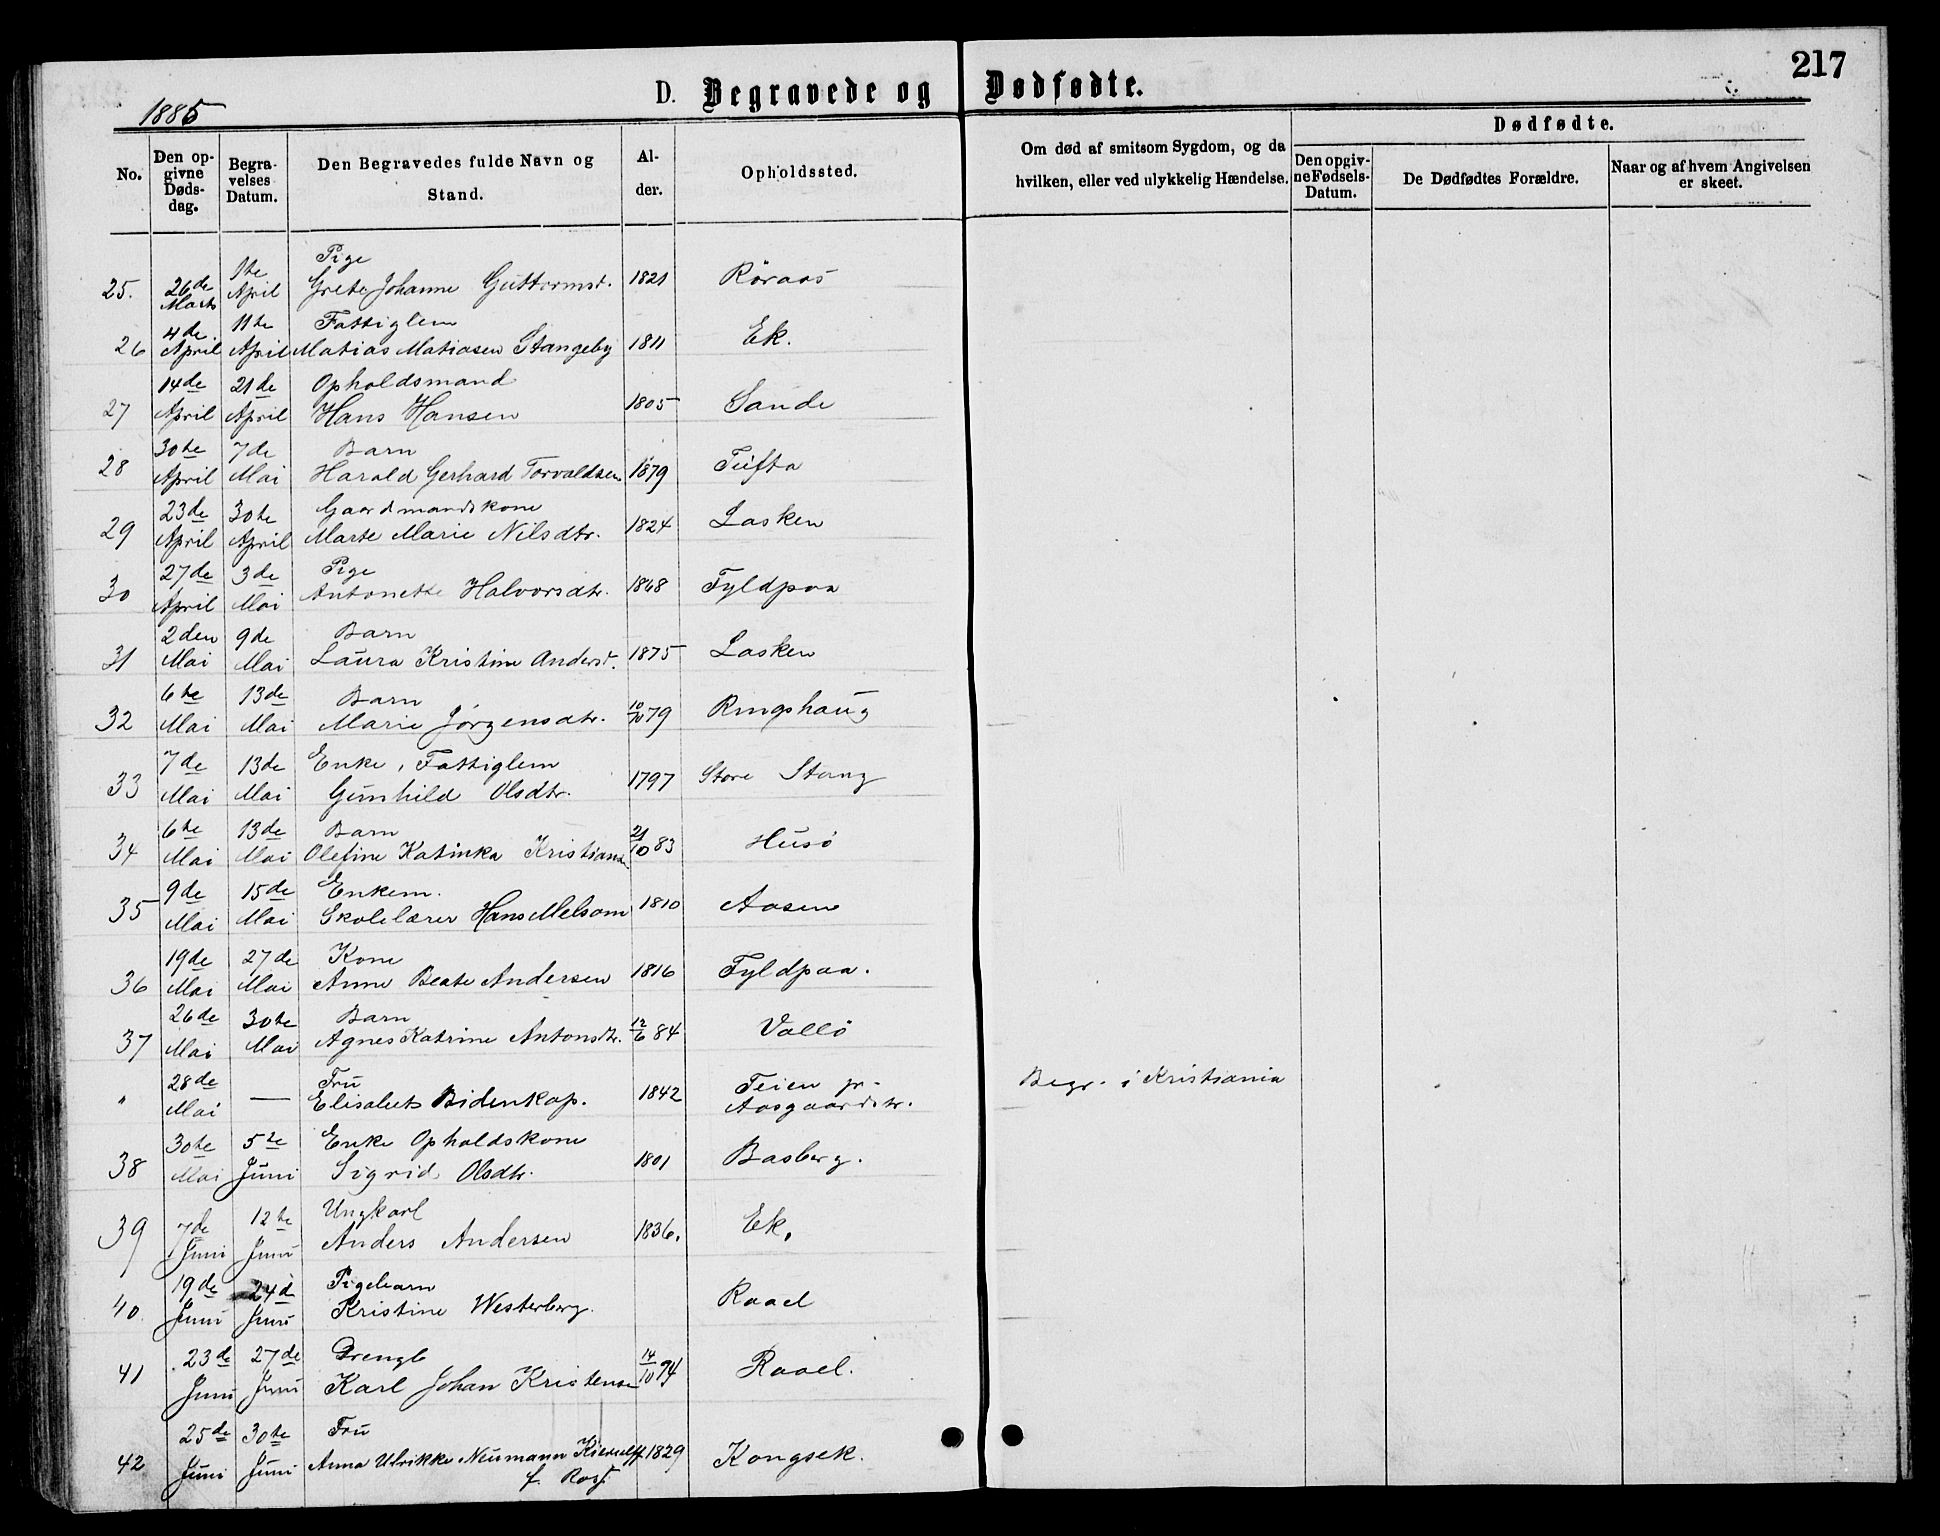 217
1885
D. Begravede og Dødfødte.
No. Den opgivne Dødsdag. Begravelses Datum. Den Begravedes fulde Navn og Stand. Alder. Opholdssted. Om død af smitsom Sygdom, og da hvilken, eller ved ulykkelig Hændelse. Dødfødte. Den opgivne Fødsels-Datum. De Dødfødtes Forældre. Naar og af hvem Angivelsen er skeet.
1te Pige
25. 26de Marts April Grete Johanne Guttormsd. 1821 Røraas
4de 11te Fattiglem
26 April April Matias Matiasen Stangeby 1811 Ek.
14de 21de Opholdsmand
27 April April Hans Hansen 1805 Sande
30te 7de Barn
28 April Mai Harald Gerhard Torvaldsen 1879 Tufta
23de 30te Gaardmandskone
29 April April Marte Marie Nilsdtr. 1824 Lasken
27de 3de Pige
30 April Mai Antonette Halvorsdtr. 1868 Fyldpaa
2den 9de Barn
31 Mai Mai Laura Kristine Andersd. 1875 Lasken
6te 13de Barn
32 Mai Mai Marie Jørgensdtr. 10/10 79 Ringshaug
7de 13de Enke, Fattiglem
33 Mai Mai Gunhild Olsdtr. 1797 Store Stang
6te 13de Barn
34 Mai Mai Olefine Katinka Kristians 21/10 83 Husø
9de 15de Enkem.
35 Mai Mai Skolelærer Hans Melsom 1810 Aasen
19de 27de Kone
36 Mai Mai Anne Beate Andersen 1816 Fyldpaa.
26de 30te Barn
37 Mai Mai Agnes Katrine Antonsdtr. 12/6 84 Vallø
28de Fru Teien pr.
" Mai — Elisabet Bidenkap. 1842 Aasgaardstr. Begr. i Kristiania
30te 5te Enke Opholdskone
38 Mai Juni Sigrid Olsdtr. 1801 Basberg.
7de 12te Ungkarl
39 Juni Juni Anders Andersen 1836. Ek.
19de 24de Pigebarn
40. Juni Juni Kristine Westerberg. Raael
23de 27de Drengb
41 Juni Juni Karl Johan Kristense 14/10 74 Raael.
25de 30te Fru
42 Juni Juni Anna Ulrikke Neumann Kierulff 1829 Kongsek.
f.